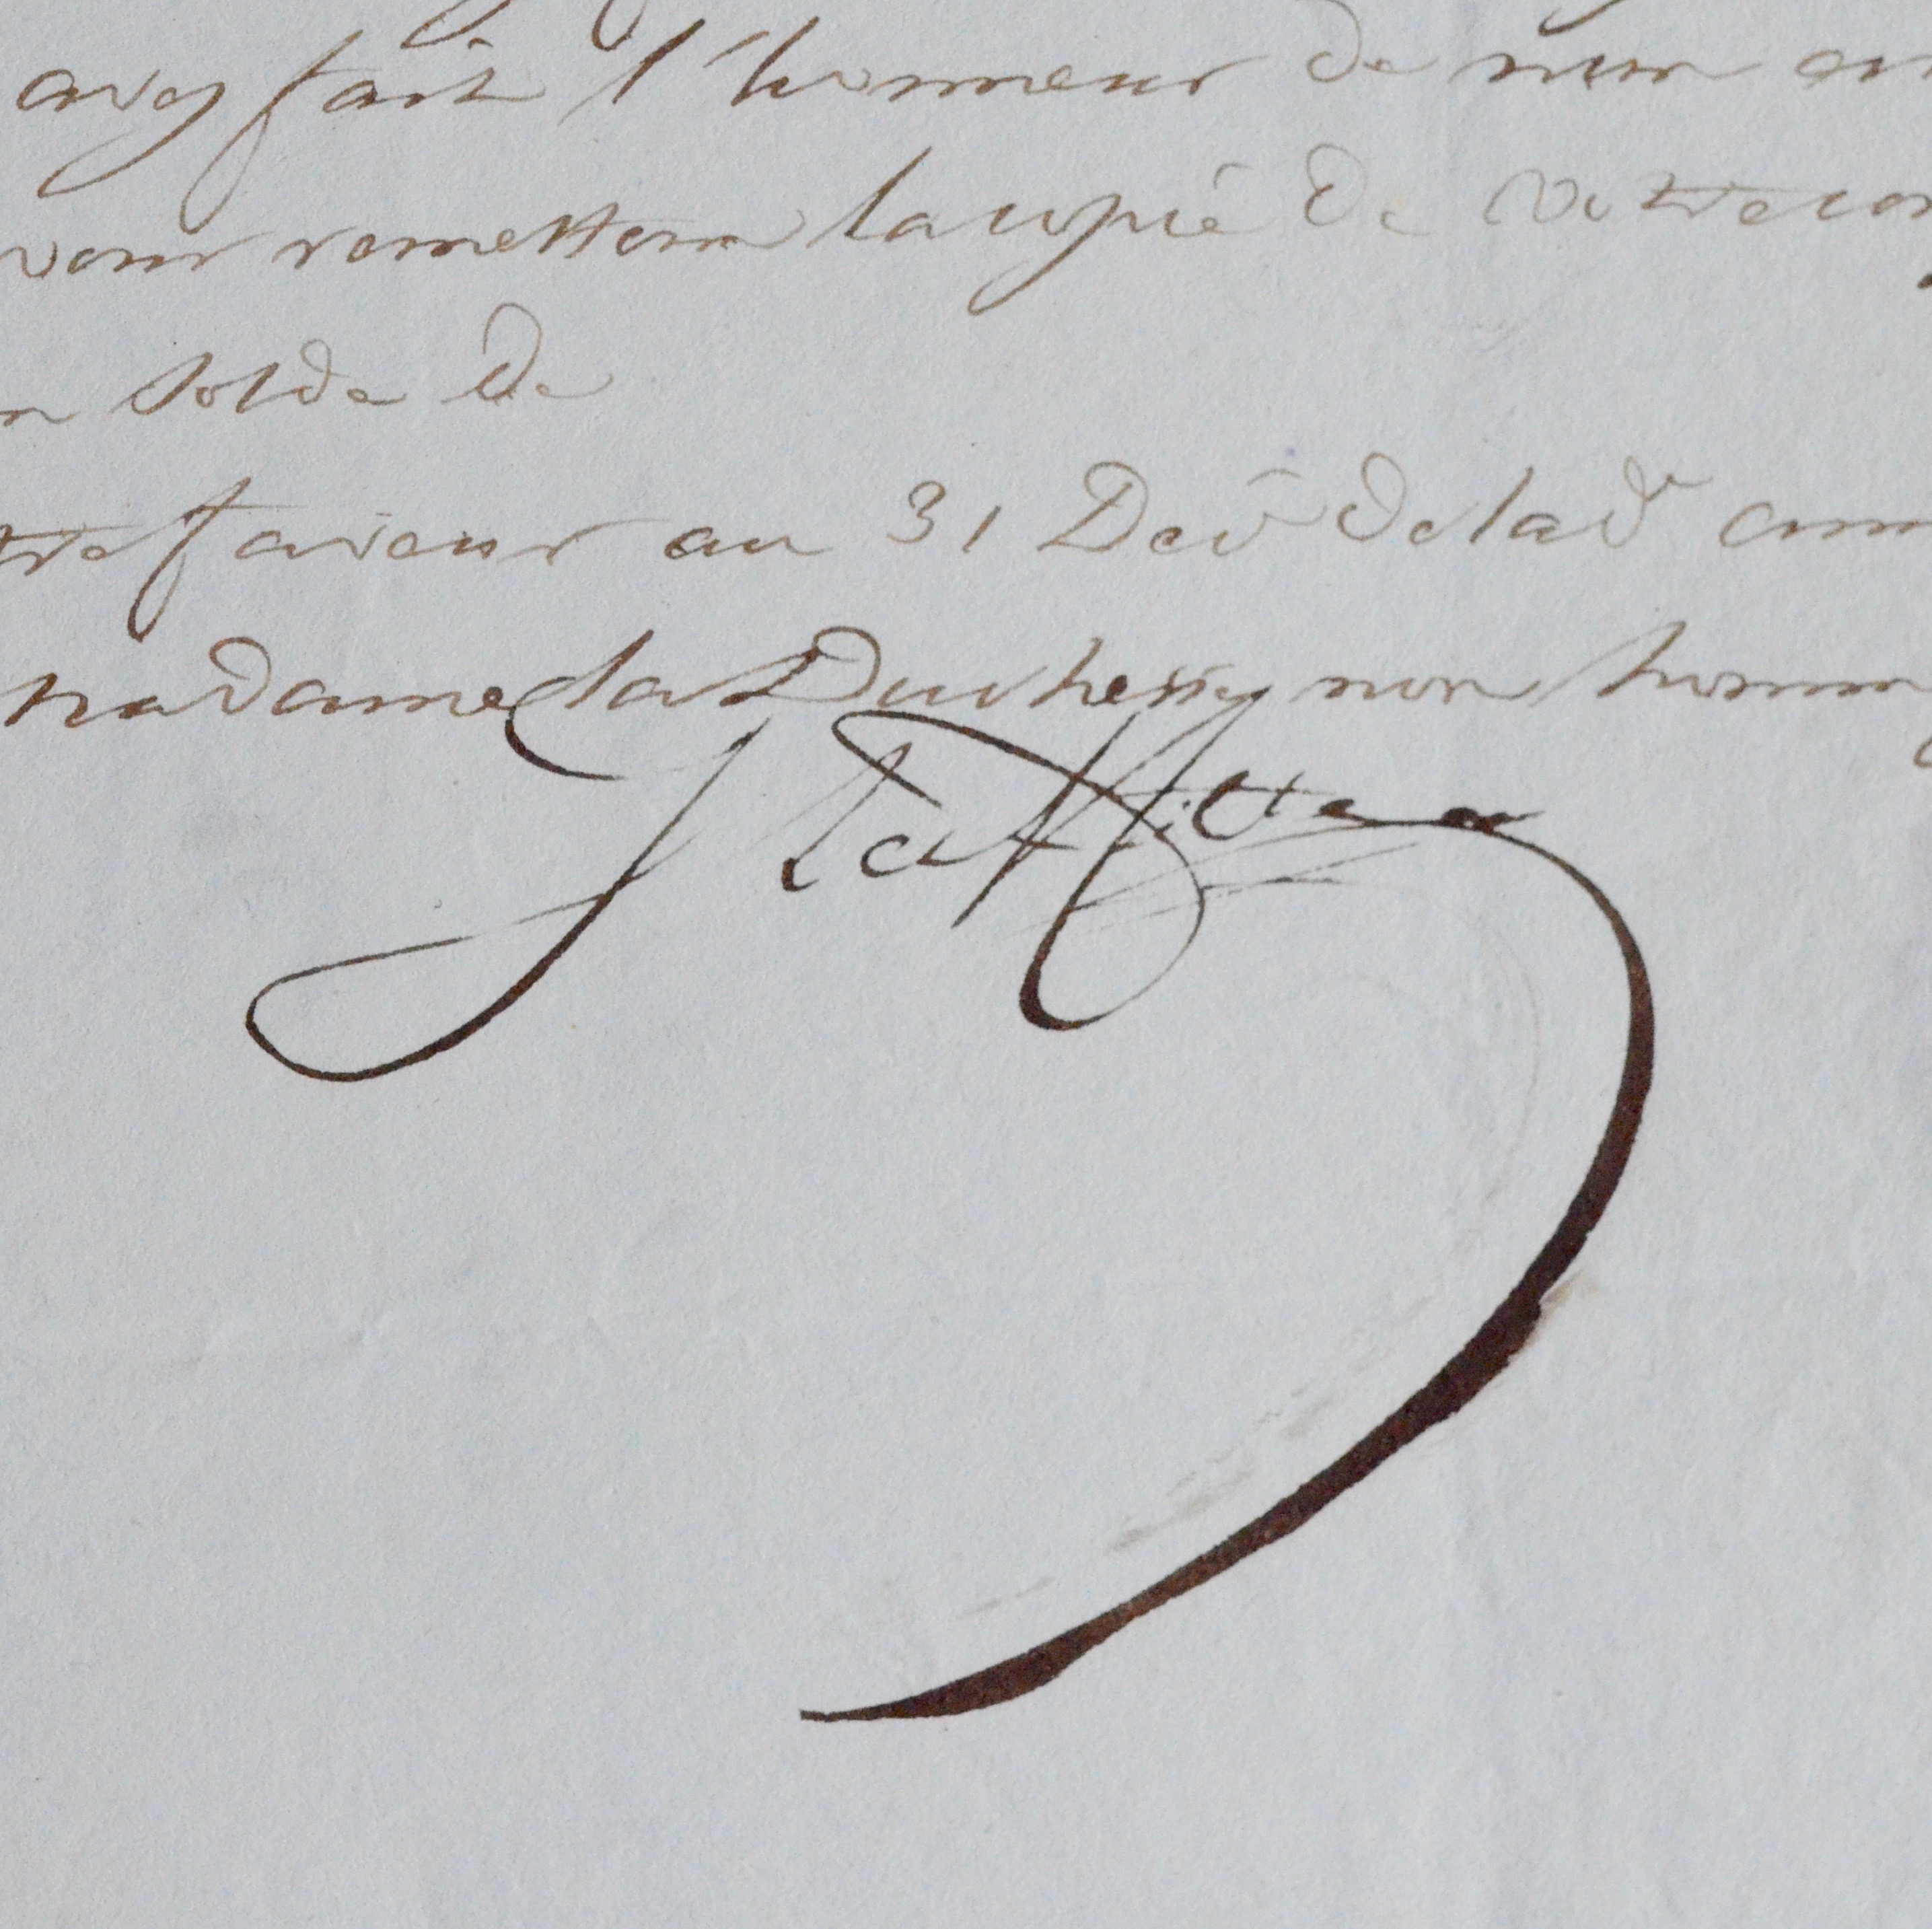 avez fait l'honneur de nous
vous remettons la copie de votre
solde de
faveur au 31 Dec de la d
madame la Duchesse nos
J Laffitte